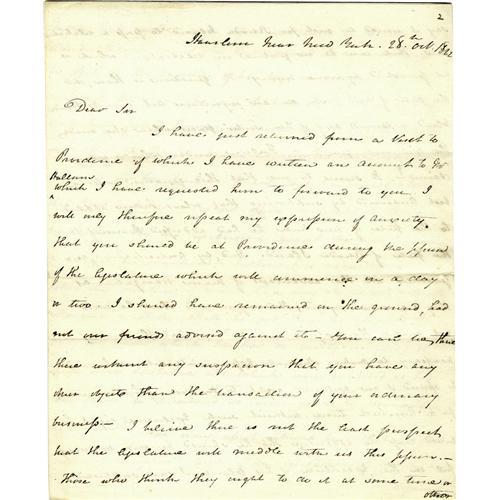 2
Haarlem Near New York. 28th Oct. 1822
Dear Sir
I have just returned from a Visit to
Providence of which I have written an account to Mr
Balsam
which I have requested him to forward to you. I
will only therefore repeat my expression of anxiety
that you should be at Providence during the session
of the legislature which will commence in a day
or two. I should have remained on the ground, had
not our friends advised against it – You can be there
there without any suspicion that you have any
other objects than the transaction of your ordinary
business – I believe there is not the least prospect
that the legislature will meddle with us this session. –
Those who think they ought to do it at some time or
other